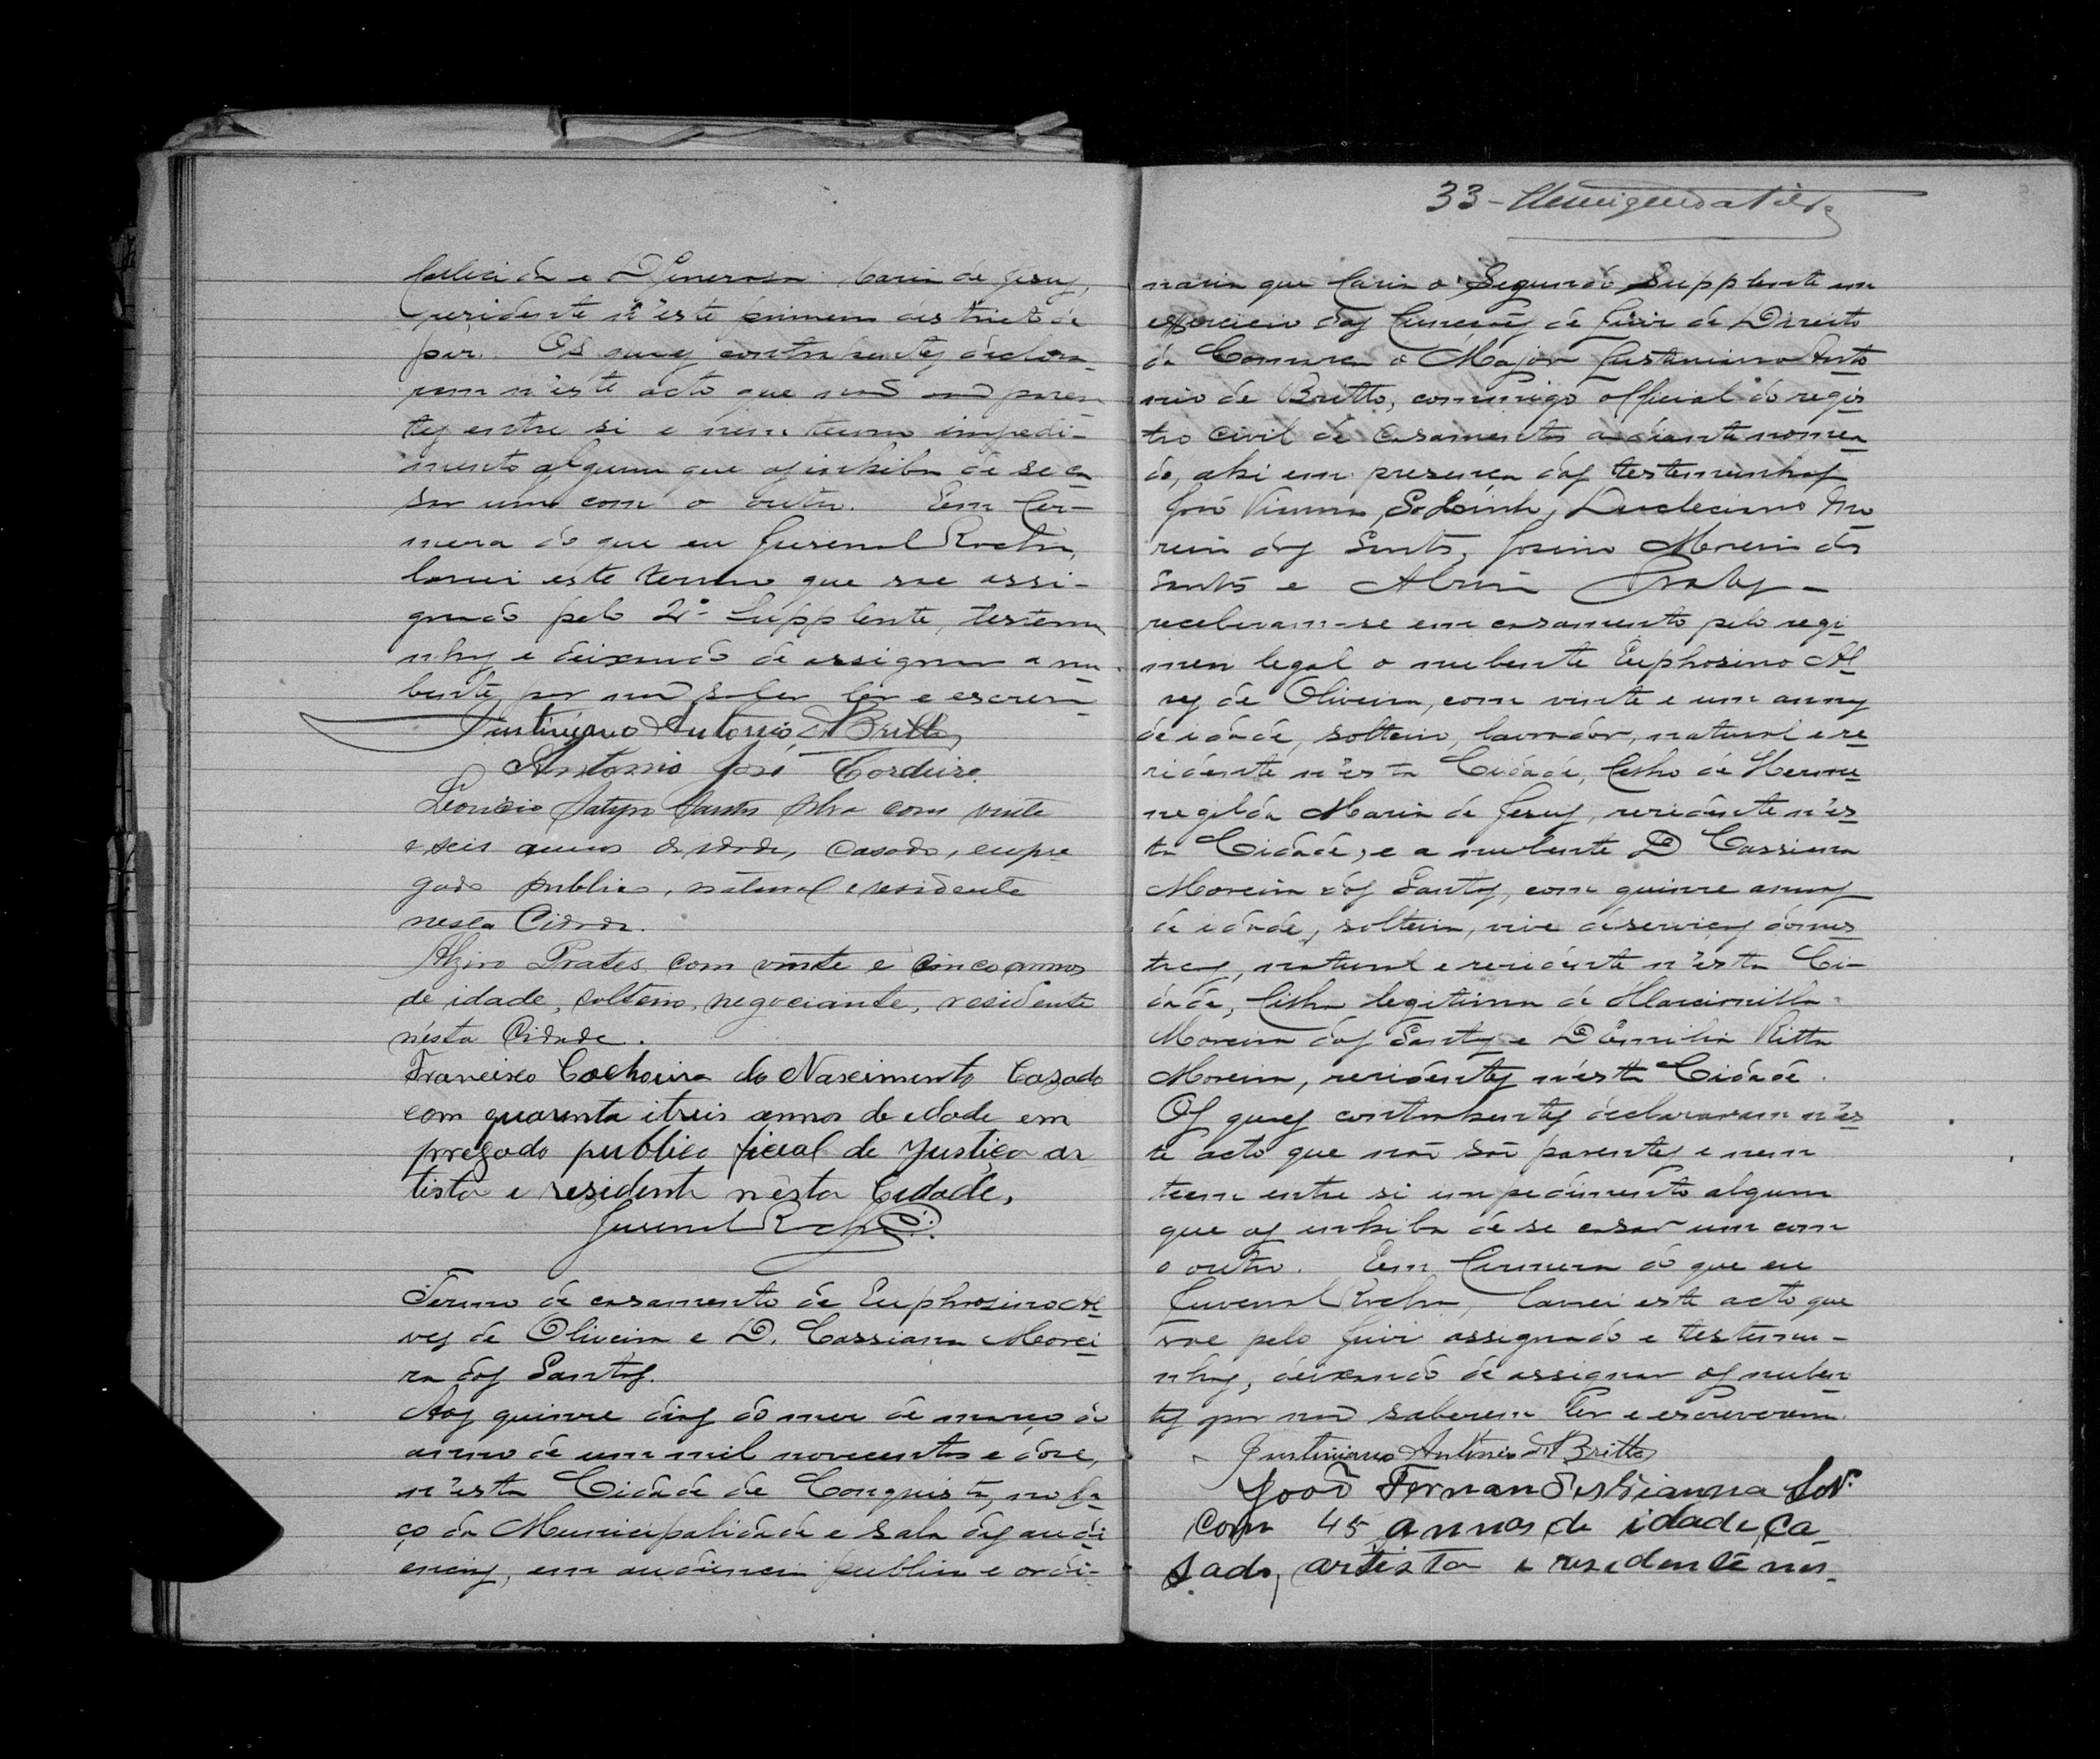 fallecido e D. Generosa Maria de Jesus,
residente n'este primeiro districto de
paz. Os quaes contrahentes declara-
ram n'este acto que não são paren
tes entre si e nem teem impedi-
mento algum que os inhiba de se ca
sar um com o outro. Em fir-
meza do que eu Juvenal Rocha,
lavrei este termo que vae assi-
gnado pelo 2º Supplente, testemu
nhas e deixando de assignar a nu
bente por não saber ler e escrever
Justiniano Antonio de Britto
Antonio José Cordeiro
Leoncio Satyro Santos Silva com vinte
e seis annos de idade, casado, empre
gado publico, natural e residente
nesta Cidade.
Alziro Prates com vinte e cinco annos
de idade, solteiro, negociante, residente
nésta Cidade.
Francisco Cachoeira do Nascimento Cazado
com quarenta itreis annos de edade em
pregado publico ficial de Justiça ar
tista e residente nésta Cidade,
Juvenal Rocha
Termo de casamento de Euphosino Al
ves de Oliveira e D. Cassiana Morei
ra dos Santos.
Aos quinze dias do mez de março do
anno de um mil novecentos e doze,
n'esta Cidade de Conquista, no Pa
ço da Municipalidade e sala das audi
encias, em audiencia publica e ordi-
33-
naria que fazia o Segundo Supplente em
exercicio das funcções de Juiz de Direito
da Comarca o Major Justiniano Anto
nio de Britto, commigo official do regis
tro civil de casamentos adiante nomea
do, ahi em presença das testemunhas
José Vianna Sobrinho, Deoclecian Mo
reira dos Santos, Josino Moreira dos
Santos e Prates -
receberam-se em casamento pelo regi
men legal o nubente Euphosino Al
ves de Oliveira, com vinte e um annos
de idade, solteiro, lavrador, natural e re
sidente n'esta Cidade, filho de Herme
negilda Maria de Jesus, residente n'es
ta Cidade, e a nubente D Cassiana
Moreira dos Santos, com quinze annos
de idade, solteira, vive de serviços domes
ticos, natural e residente n'esta Ci-
dade, filha legitima de Marcionillo
Moreira dos Santos e D Emilia Ritta
Moreira, residentes n'ésta Cidade.
Os quaes contrahentes declararam n'es
te acto que não são parentes e nem
teem entre si impedimento algum
que os inhiba de se casar um com
o outro. Em firmeza do que eu
Juvenal Rocha, lavrei este acto que
vae pelo Juiz assignado e testemu-
nhas, deixando de assignar os nuben
tes por não saberem ler e escreverem.
Justiniano Antonio de Britto
João Fernandes Vianna
com 45 annos de idade, ca-
sado, artista e residente nes-